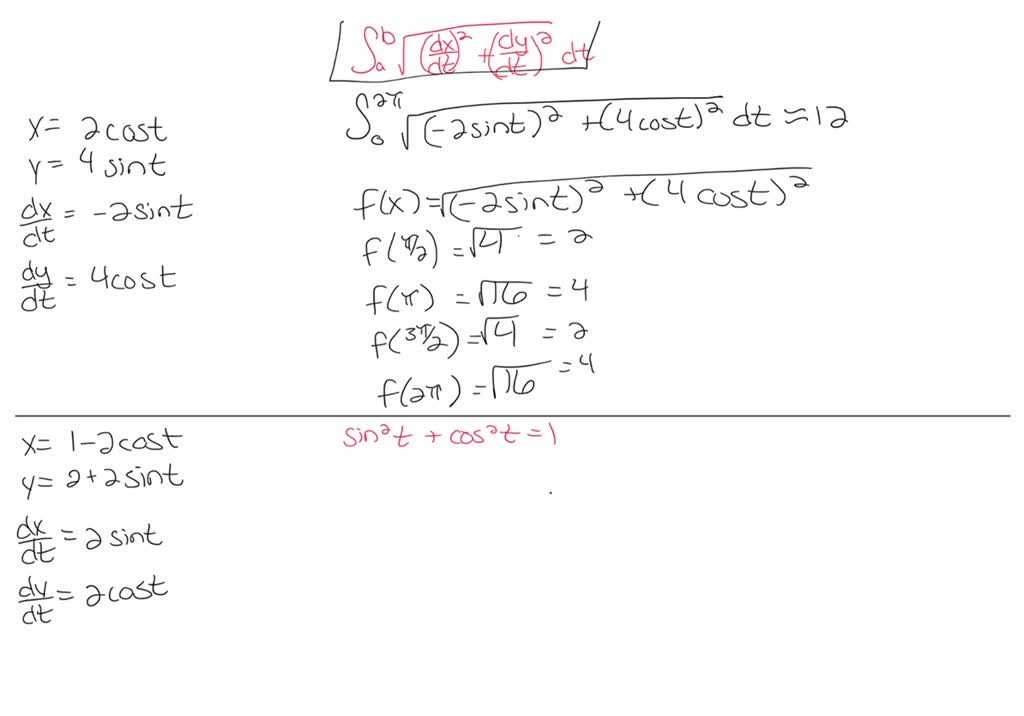 ∫ₐᵇ √((dx/dt)² + (dy/dt)²) dt
x = 2cost
y = 4 sint
dx/dt = -2sint
dy/dt = 4cost
∫₀^2π √((-2sint)² + (4cost)²) dt ≈ 12
f(x) = √((-2sint)² + (4 cost)²)
f(π/2) = √4 = 2
f(π) = √16 = 4
f(3π/2) = √4 = 2
f(2π) = √16 = 4
x = 1-2cost
y = 2+2sint
dx/dt = 2 sint
dy/dt = 2cost
sin²t + cos²t = 1